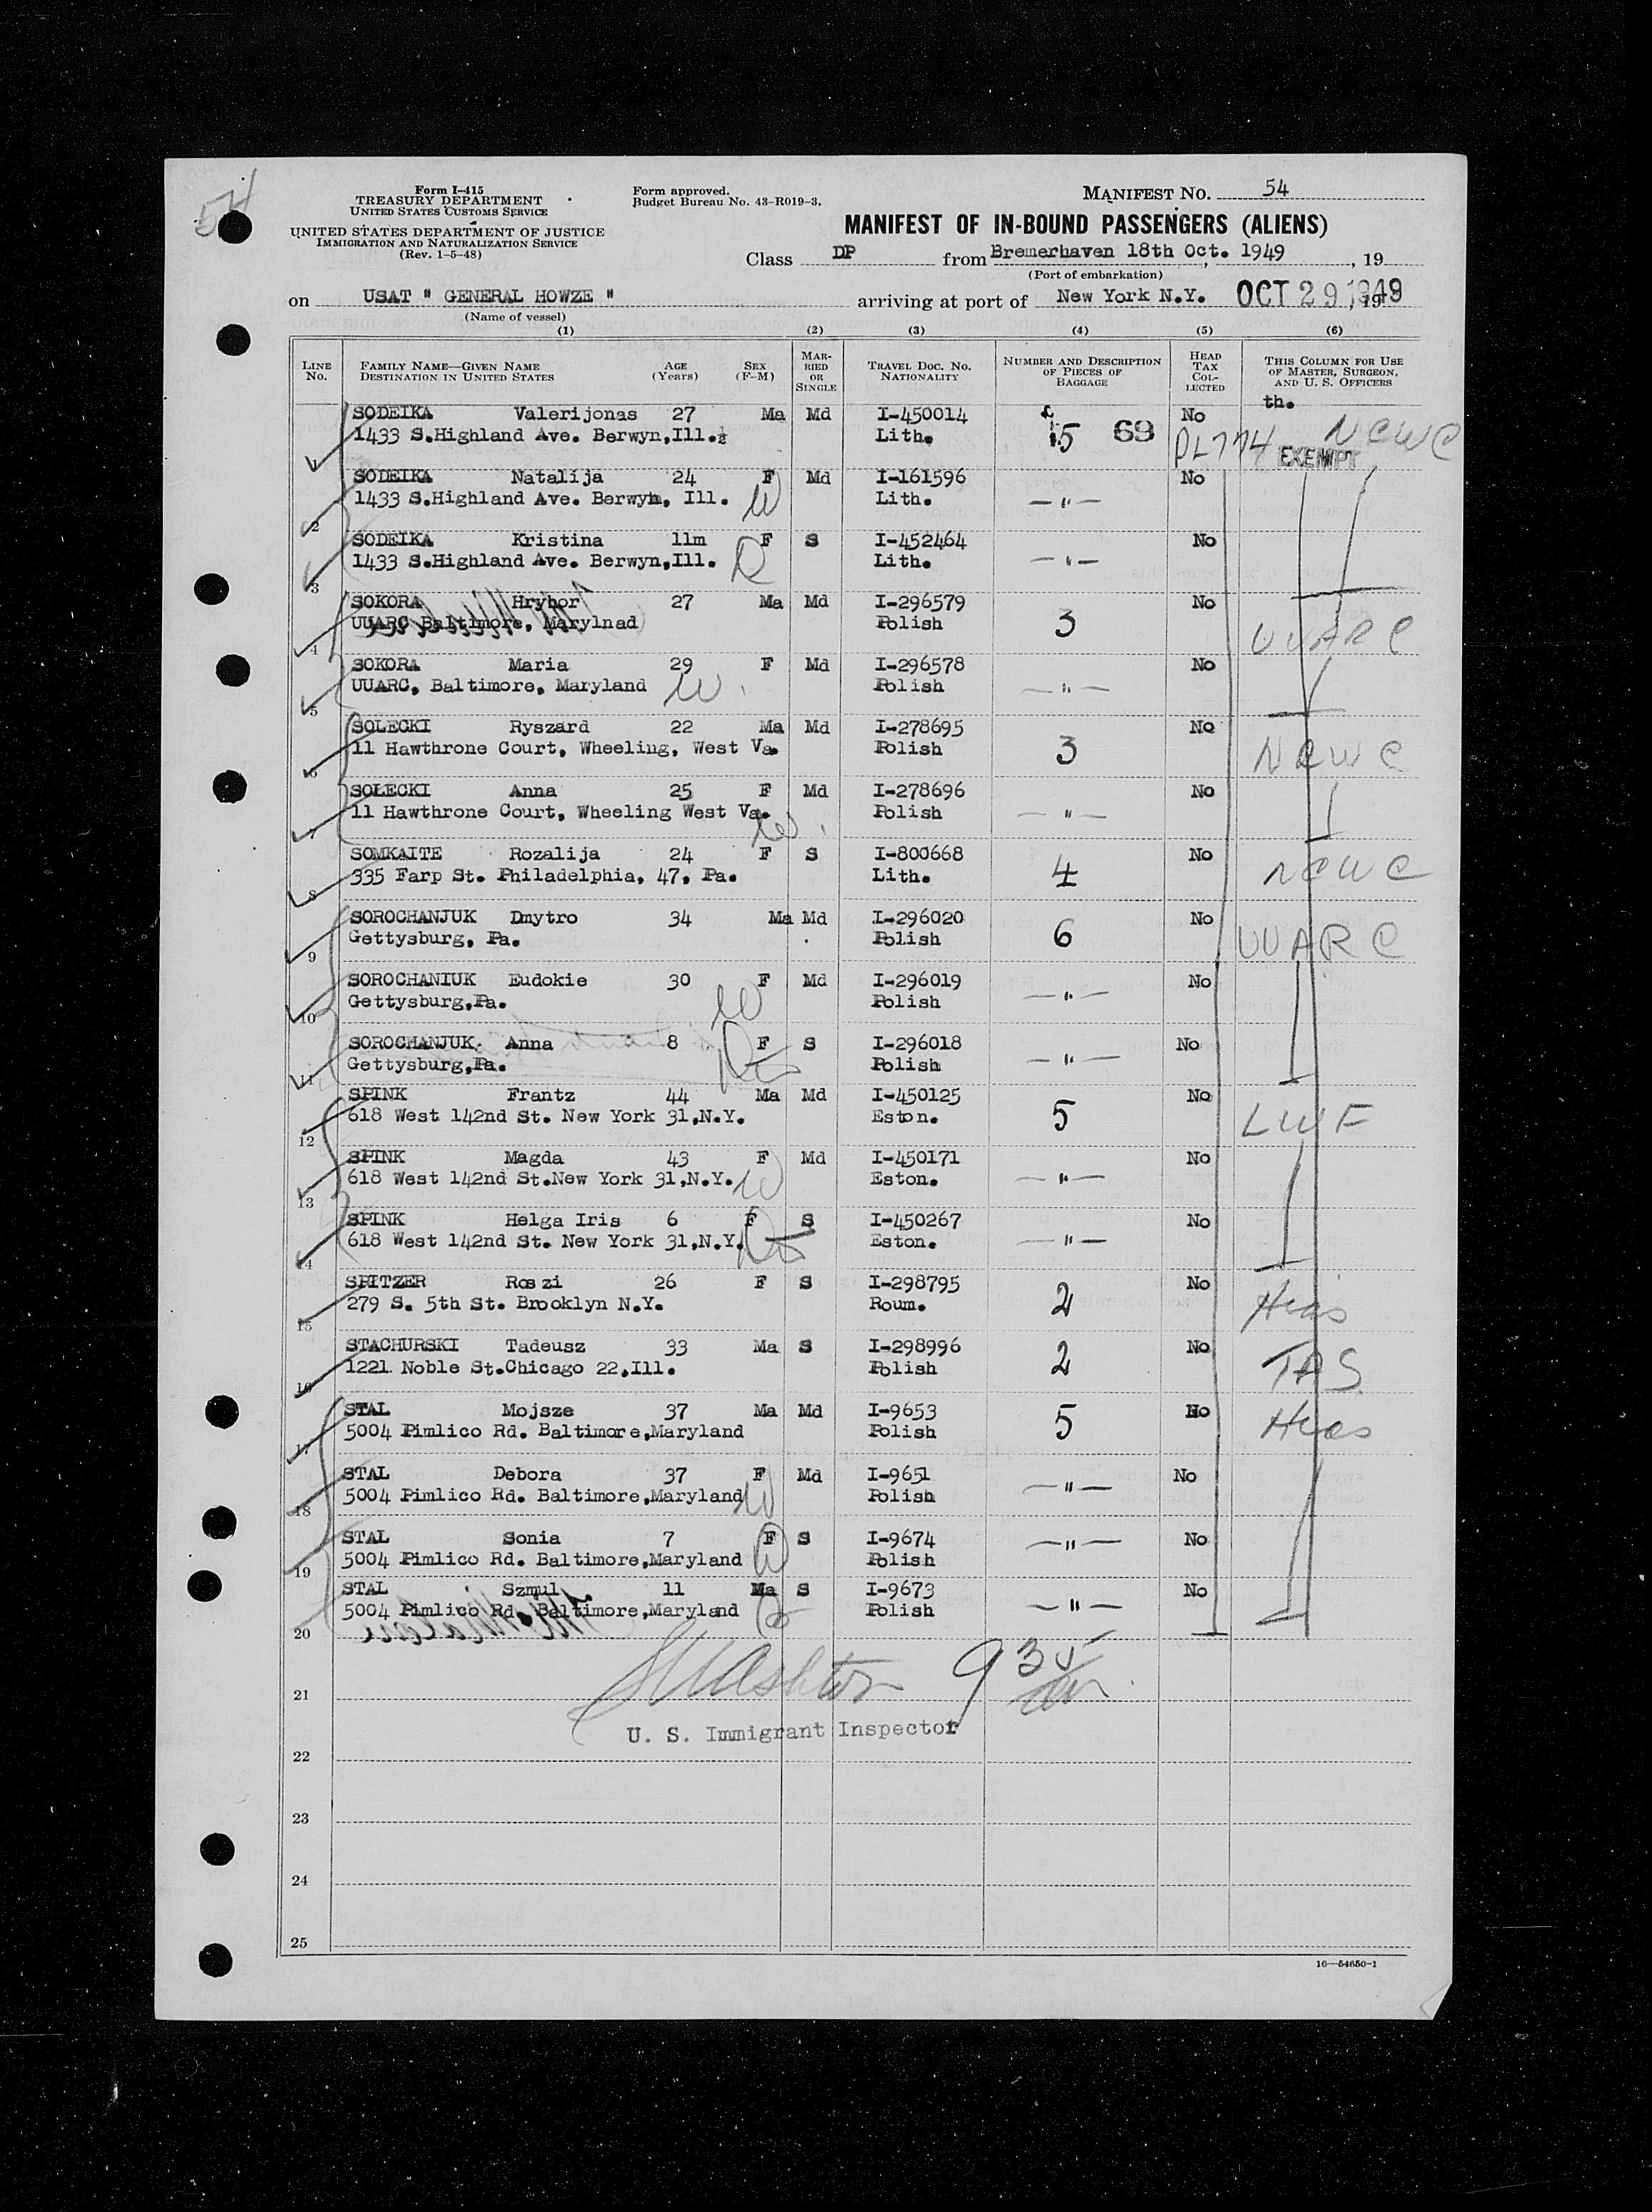 54
Form I-415
TREASURY DEPARTMENT
UNITED STATES CUSTOMS SERVICE
UNITED STATES DEPARTMENT OF JUSTICE
IMMIGRATION AND NATURALIZATION SERVICE
(Rev. 1-5-48)
Form approved.
Budget Bureau No. 43-R019-3.
MANIFEST NO. 54
MANIFEST OF IN-BOUND PASSENGERS (ALIENS)
Class DP from Bremerhaven 18th Oct. 1949, 19
(Port of embarkation)
on USAT " GENERAL HOWZE " arriving at port of New York N.Y. OCT 29 1949, 19
(Name of vessel)
(1) (2) (3) (4) (5) (6)
LINE No. FAMILY NAME—GIVEN NAME DESTINATION IN UNITED STATES AGE (Years) SEX (F-M) MARRIED OR SINGLE TRAVEL DOC. NO. NATIONALITY NUMBER AND DESCRIPTION OF PIECES OF BAGGAGE HEAD TAX COLLECTED THIS COLUMN FOR USE OF MASTER, SURGEON, AND U. S. OFFICERS
th.
SODEIKA Valerijonas 27 Ma Md I-450014 5 69 No NCWC
1 1433 S.Highland Ave. Berwyn,Ill. Lith. PL774 EXEMPT
SODEIKA Natalija 24 F Md I-161596 No
2 1433 S.Highland Ave. Berwyn, Ill. W Lith. — " —
SODEIKA Kristina 11m F S I-452464 No
3 1433 S.Highland Ave. Berwyn,Ill. D Lith. — " —
SOKORA Hryhor 27 Ma Md I-296579 3 No
4 UUARC Baltimore, Marylnad Polish UUARC
SOKORA Maria 29 F Md I-296578 No
5 UUARC, Baltimore, Maryland W Polish — " —
SOLECKI Ryszard 22 Ma Md I-278695 3 No
6 11 Hawthrone Court, Wheeling, West Va. Polish NCWC
SOLECKI Anna 25 F Md I-278696 No
7 11 Hawthrone Court, Wheeling West Va. W Polish — " —
SOMKAITE Rozalija 24 F S I-800668 4 No
8 335 Farp St. Philadelphia, 47, Pa. Lith. NCWC
SOROCHANJUK Dmytro 34 Ma Md I-296020 6 No
9 Gettysburg, Pa. Polish UUARC
SOROCHANIUK Eudokie 30 F Md I-296019 No
10 Gettysburg,Pa. W Polish — " —
SOROCHANJUK Anna 8 F S I-296018 No
11 Gettysburg,Pa. Polish — " —
SPINK Frantz 44 Ma Md I-450125 5 No
12 618 West 142nd St. New York 31,N.Y. Eston. LWF
SPINK Magda 43 F Md I-450171 No
13 618 West 142nd St.New York 31,N.Y. W Eston. — " —
SPINK Helga Iris 6 F S I-450267 No
14 618 West 142nd St. New York 31,N.Y. Eston. — " —
SPITZER Roszi 26 F S I-298795 2 No
15 279 S. 5th St. Brooklyn N.Y. Roum. Hias
STACHURSKI Tadeusz 33 Ma S I-298996 2 No
16 1221 Noble St.Chicago 22,Ill. Polish
STAL Mojsze 37 Ma Md I-9653 5 No
17 5004 Pimlico Rd. Baltimore,Maryland Polish Hias
STAL Debora 37 F Md I-9651 No
18 5004 Pimlico Rd. Baltimore,Maryland W Polish — " —
STAL Sonia 7 F S I-9674 No
19 5004 Pimlico Rd. Baltimore,Maryland Polish — " —
STAL Szmul 11 Ma S I-9673 No
20 5004 Pimlico Rd. Baltimore,Maryland Polish — " —
21 Washton 9 35
U. S. Immigrant Inspector
22
23
24
25
16—54650-1